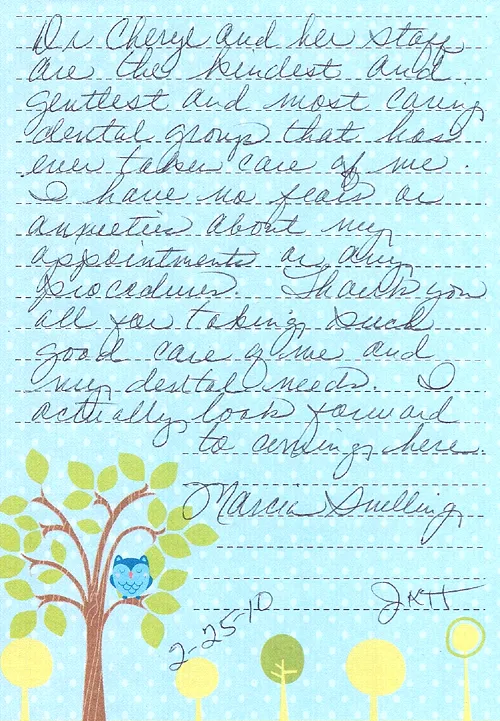 Dr Cheryl and her staff
are the kindest and
gentlest and most caring
dental group that has
ever taken care of me.
I have no fears or
anxieties about my
appointments or any
procedures. Thank you
all for taking such
good care of me and
my dental needs. I
actually look forward
to coming here.
Marcia Snelling
JKH
2-25-10